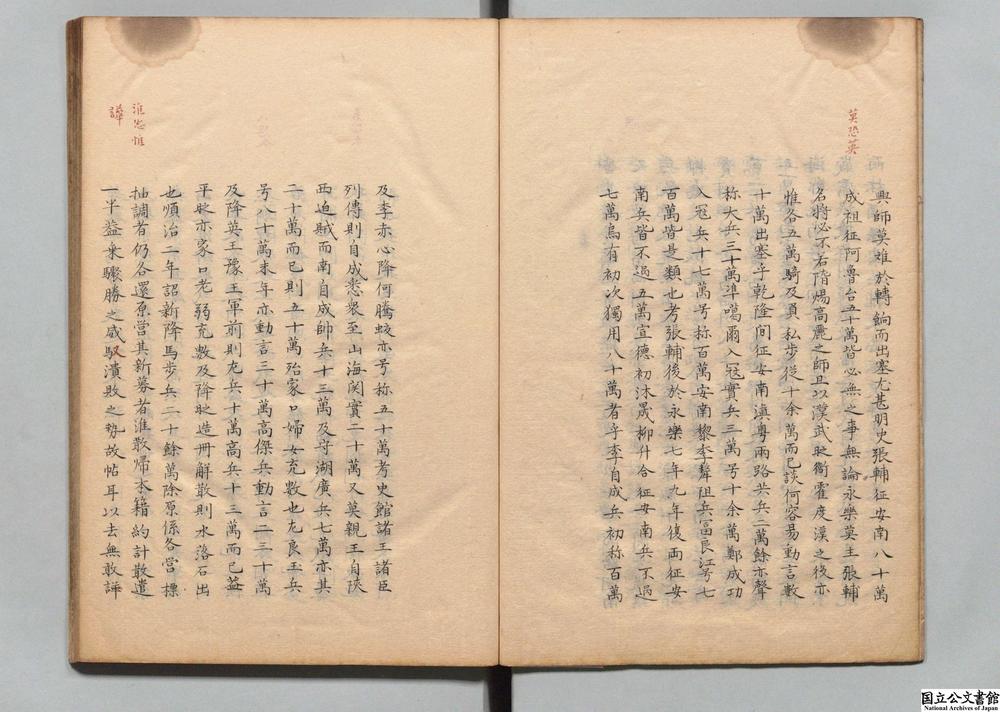 莫恐英
興師莫难於轉餉而出塞尤甚明史張輔征安南八十萬
成祖征阿魯台五十萬皆必無之事無論永樂莫主張輔
名將必不右隋煬高麗之師且以漢武时衛霍度漠之後亦
惟各五萬騎及負私步從十余萬而已談何容易動言數
十萬出塞乎乾隆间征安南滇粤兩路共兵二萬餘亦聲
称大兵三十萬準噶爾入冦實兵三萬号十余萬鄭成功
入冦兵十七萬号称百萬安南黎季犛阻兵富良江号七
百萬皆是類也考張輔後於永樂七年九年復両征安
南兵皆不過五萬宣德初沐晟柳升合征安南兵不過
七萬烏有初次獨用八十萬者乎李自成兵初称百萬
淮恐惟
譁
及李赤心降何騰蛟亦号称五十萬考史館諸王諸臣
列傳則自成悉衆至山海関實二十萬又英親王自陕
西追賊而南自成帥兵十三萬及守湖廣兵七萬亦其
二十萬而已則五十萬殆家口婦女充數也左良玉兵
号八十萬末年亦動言三十萬高傑兵動言二三十萬
及降英王豫王軍前則左兵十萬高兵十三萬而已蓋
平时亦家口老弱充數及降时造册解散則水落石出
也順治二年詔新降馬步兵二十餘萬除原係各營標
抽調者仍合還原營其新募者淮散歸本籍約計散遣
一半益乗驟勝之威馭潰敗之勢故帖耳以去無敢諢
国立公文書館
National Archives of Japan